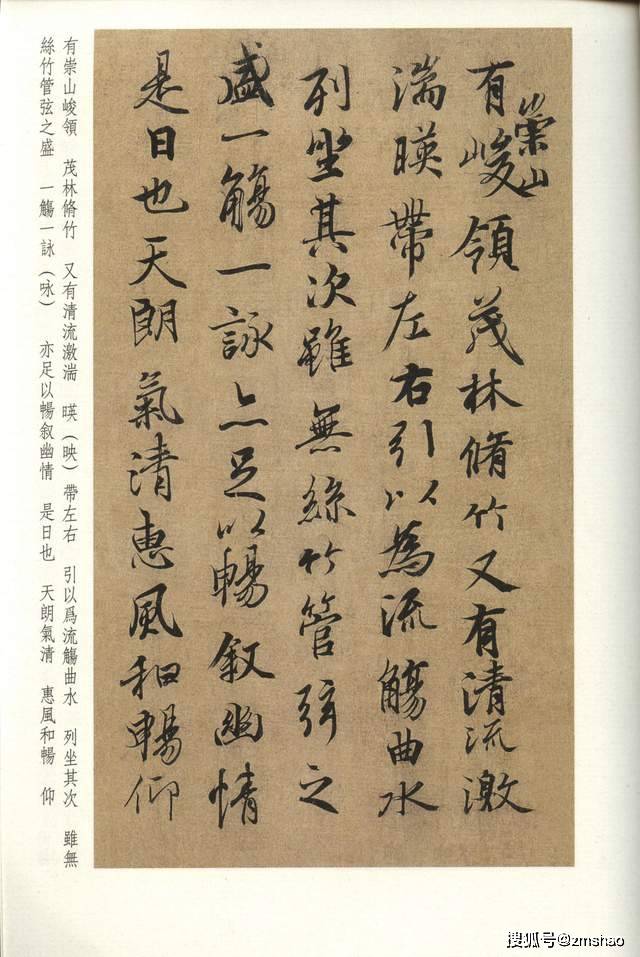 有崇山峻領茂林脩竹又有清流激
湍暎帶左右引以為流觴曲水
列坐其次雖無絲竹管弦之
盛一觴一詠亦足以暢敘幽情
是日也天朗氣清惠風和暢仰
有崇山峻領 茂林脩竹 又有清流激湍 暎（映）帶左右 引以爲流觴曲水 列坐其次 雖無
絲竹管弦之盛 一觴一詠（咏） 亦足以暢叙幽情 是日也 天朗氣清 惠風和暢 仰
搜狐号@zmshao